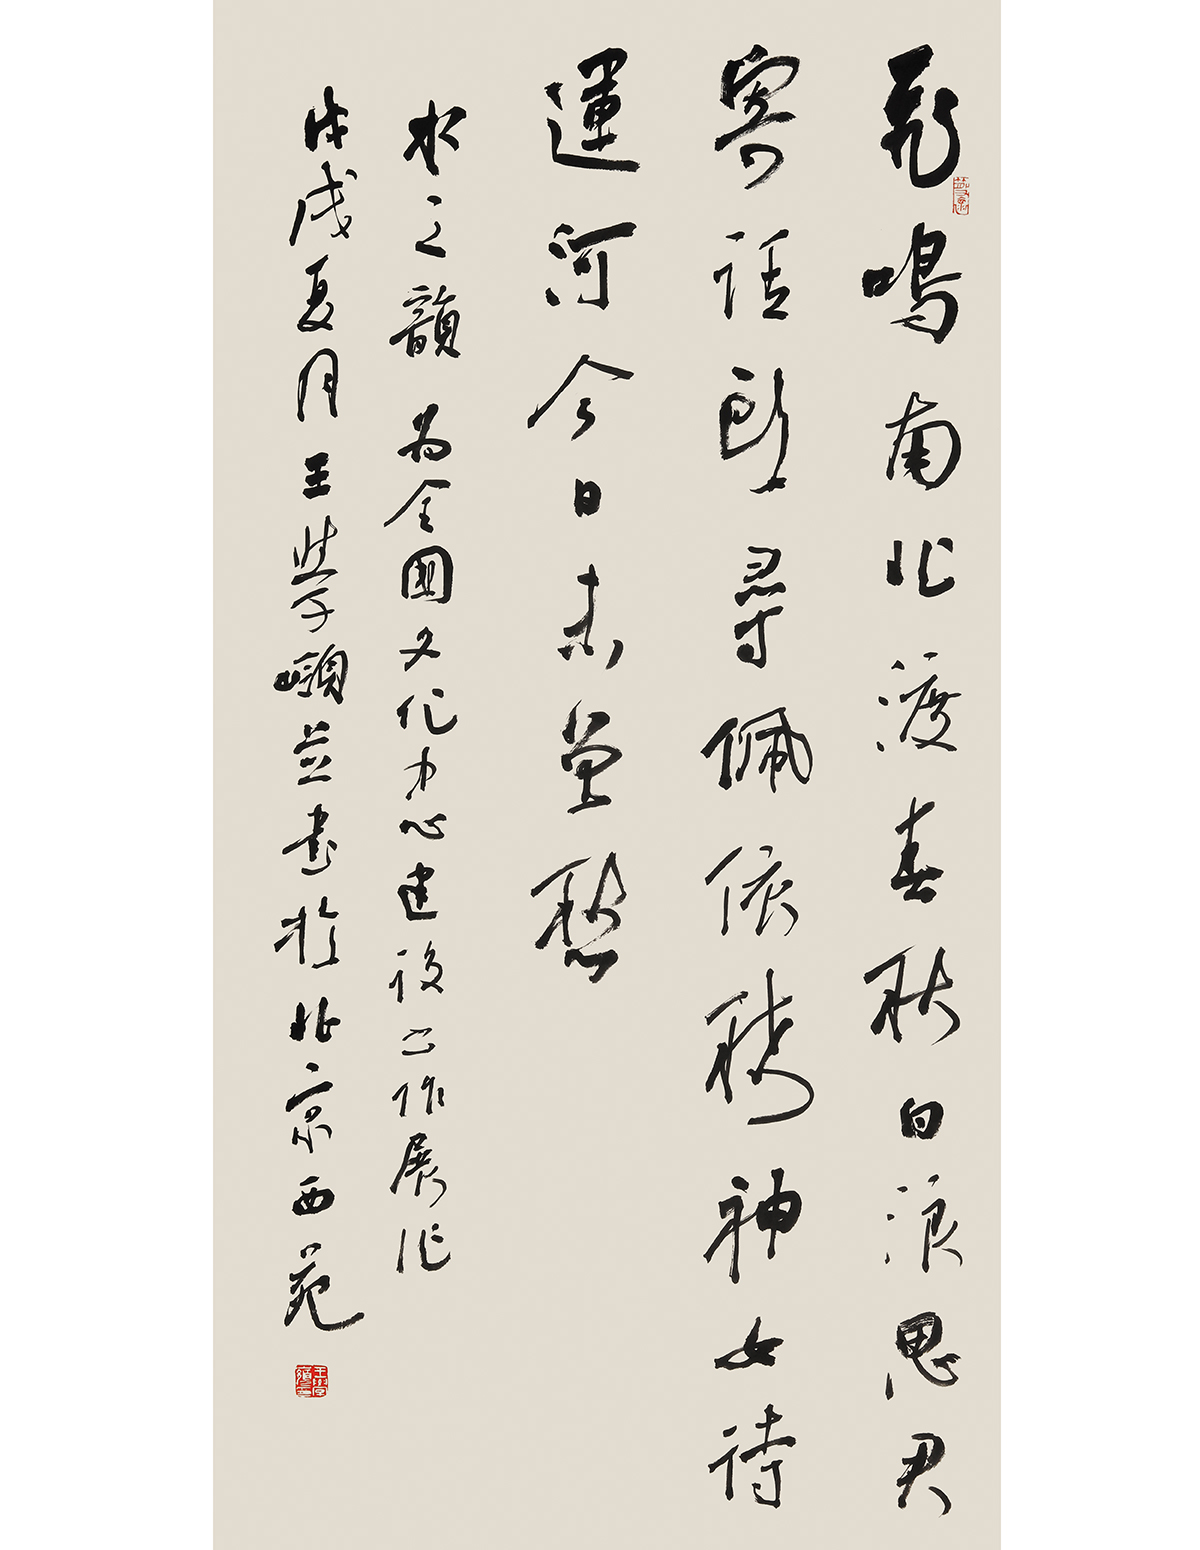 飛鳴南北渡春秋白浪思君
寄話頭尋佩依稀神女待
運河今日未曾愁
水之韻 為全國文化中心建設书作展作
戊戌夏月王學嶺並書於北京西苑